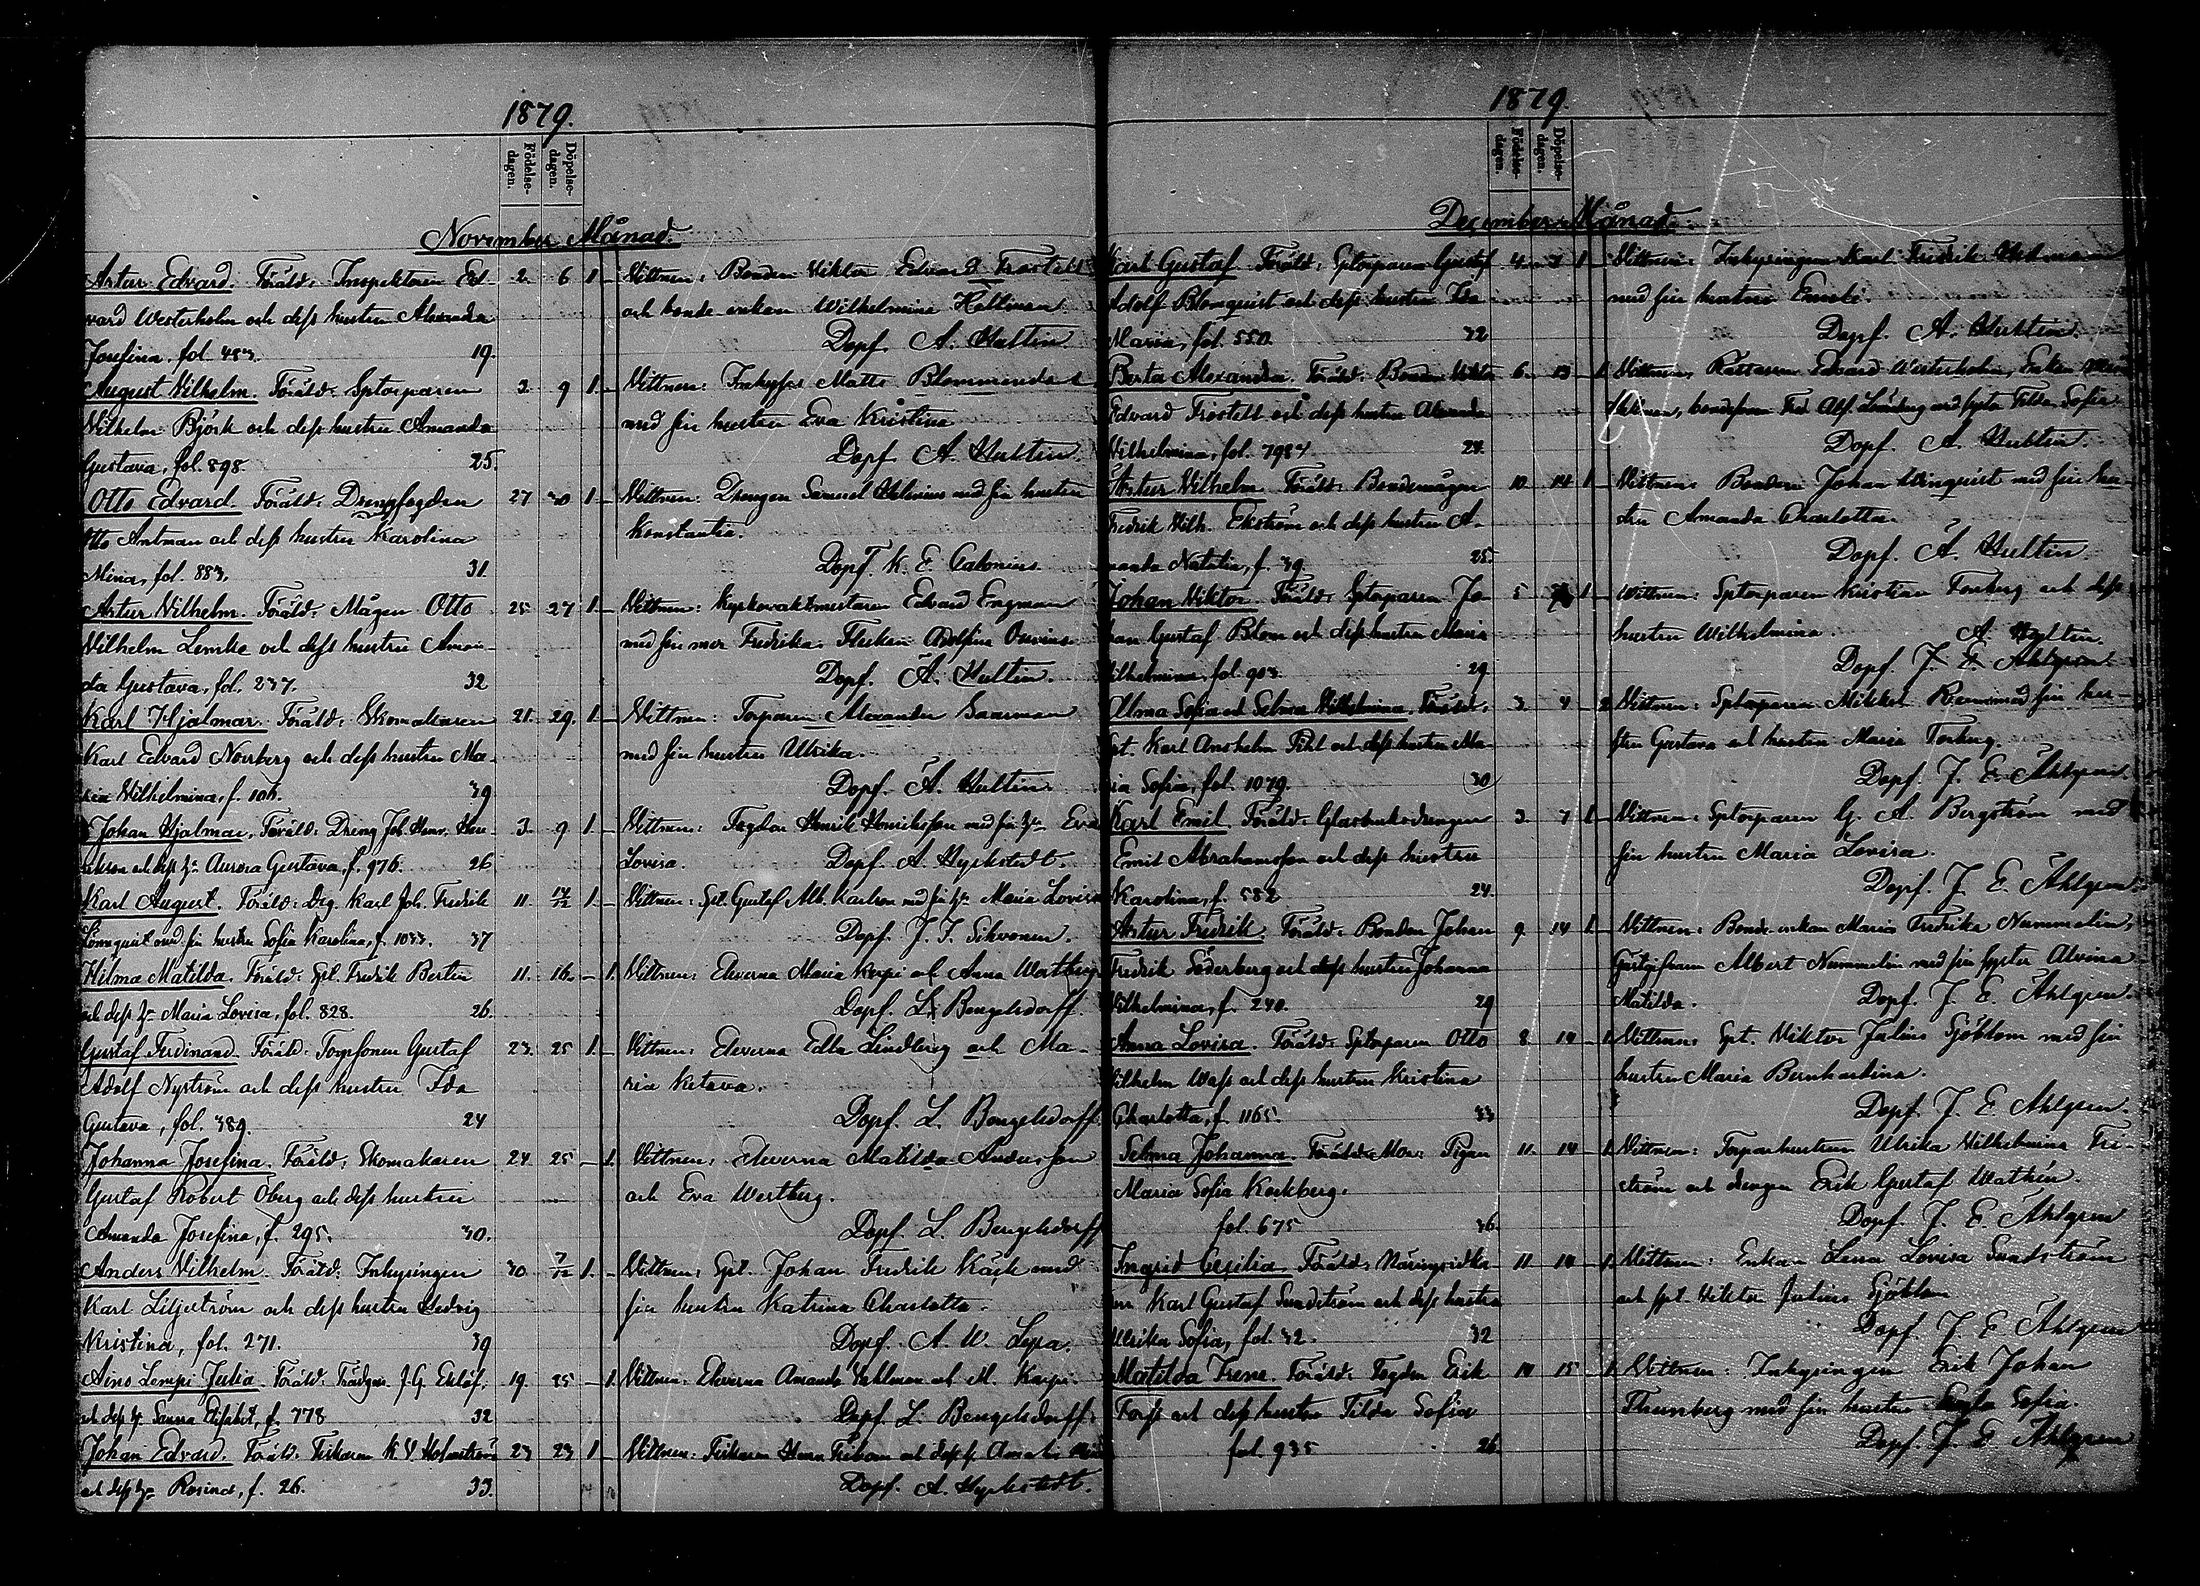 1879.
Födelse-dagen.
Döpelse-dagen.
November Månad.
Artur Edvard. Föräld: Inspektoren Ed- 2. 6 1 - Vittnen: Bonden Viktor Edvard Frostell
vard Westerholm och dess hustru Alexandra och bonde enkan Wilhelmina Hellman
Josefina, fol. 483. 19. Dopf. A. Hultin
August Vilhelm. Föräld: Sptorparen 3. 9 1 - Vittnen: Inhyses Matts
Vilhelm Björk och dess hustru Amanda med sin hustru Eva Kristina
Gustava, fol. 898. 25. Dopf. A. Hultin.
Otto Edvard. Föräld: 27 30 1 - Vittnen: Drengen Samuel Helenius med sin hustru
Otto Antman och dess hustru Karolina Konstantia.
Mina, fol. 883. 31. Dopf. K. E. Calonius.
Artur Vilhelm. Föräld: Mågen Otto 25 27 1 - Vittnen: Kyrkovaktmestaren Edvard Engman
Vilhelm Lemke och dess hustru Aman- med sin mor Fredrika. Flickan Adolfina
da Gustava, fol. 237. 32 Dopf. A. Hultin.
Karl Hjalmar. Föräld: Skomakaren 21. 29. 1 - Vittnen: Torparen Alexander Saarman
Karl Edvard Norrberg och dess hustru Ma- med sin hustru Ulrika.
ria Vilhelmina, f. 106. 39 Dopf. A. Hultin
Johan Hjalmar. Föräld: Dreng Joh. Henr. Hen- 3. 9 1 Vittnen: Fogden Henrik Henriksson med sin h:u Eva
rikson och dess h:u Aurora Gustava, f. 976. 26 Lovisa. Dopf. A. Hyrkstedt.
Karl August. Föräld: Drg. Karl Joh. Fredrik 11. 14/12 1 - Vittnen: Spt. Gustaf Alb. Karlson med sin h:u Maria Lovisa
Lönnquist med sin hustru Sofia Karolina, f. 1033. 37 Dopf. J. F. Sihvonen.
Hilma Matilda. Föräld: Spt. Fredrik Bertin 11. 16. - 1. Vittnen: Eleverna Maria Karpi och Anna Wertberg
och dess h:u Maria Lovisa, fol. 828. 26. Dopf. L. Bengelsdorff.
Gustaf Ferdinand. Föräld: Torpsonen Gustaf 23. 25 1. - Vittnen: Eleverna Edla Lindberg och Ma-
Adolf Nyström och dess hustru Ida ria Ketava.
Gustava, fol. 389. 24 Dopf. L. Bengelsdorff.
Johanna Josefina. Föräld: Skomakaren 24. 25 - 1. Vittnen: Eleverna Matilda Andersson
Gustaf Robert Öberg och dess hustru och Eva Wertberg.
Amanda Josefina, f. 295. 30. Dopf. L. Bengelsdorff
Anders Vilhelm. Föräld: Inhysingen 30. 7/12 1. - Vittnen: Spt. Johan Fredrik Käck med
Karl Liljeström och dess hustru Hedvig sin hustru Katrina Charlotta.
Kristina, fol. 271. 39 Dopf. A. W. Lepa.
Aino Lempi Julia. Föräld: Trädgm. J. G. Eklöf. 19. 25 - 1. Vittnen: Eleverna Amanda Sahlman och M. Karpi.
och dess h. Sanna Elisabet, f. 778 32 Dopf. L. Bengelsdorff.
Johan Edvard. Föräld: Fiskaren K. V. Holmström 23 23 1. Vittnen: Fiskaren Henr. Friboom och dess h.
och dess h:u Rosina, f. 26. 33. Dopf. A. Hyrkstedt.
1879.
Födelse-dagen.
Döpelse-dagen.
December Månad.
Karl Gustaf. Föräld: Sptorparen Gustaf 4. 7 1 - Vittnen: Inhysingen Karl Fredrik
Adolf Blomquist och dess hustru Ida med sin hustru
Maria, fol. 550. 32 Dopf. A. Hultin.
Berta Alexandra. Föräld: Bonden Viktor 6. 13 - 1 Vittnen: Rättaren Edvard Westerholm, Enkan
Edvard Frostell och dess hustru Alexandra bondesonen Fred. Alf. med syster Tilda Sofia
Vilhelmina, fol. 24. Dopf. A. Hultin.
Artur Vilhelm. Föräld: Bondemågen 10. 14 1 - Vittnen: Bonden Johan Winquist med sin hu-
Fredrik Vilh. Ekström och dess hustru A- stru Amanda Charlotta.
manda Natalia, f. 39. 25. Dopf. A. Hultin
Johan Viktor. Föräld: Sptorparen Jo- 5 1 - Vittnen: Sptorparen Kristian Forsberg och dess
han Gustaf Blom och dess hustru Maria hustru Wilhelmina. A. Hultin
Vilhelmina, fol. 903. 29 Dopf. J. E. Ahlgren.
Alma Sofia och Selma Wilhelmina. Föräld: 3. 4 - 2 Vittnen: Sptorparen Mikkel med sin hu-
Spt. Karl Anshelm Pihl och dess hustru Ma- stru Gustava och hustru Maria Forsberg.
ria Sofia, fol. 1079. 30 Dopf. J. E. Åhlgren.
Karl Emil. Föräld: Glasbruksdrengen 3. 7 1 - Vittnen: Sptorparen G. A. Bergström med
Emil Abrahamsson och dess hustru sin hustru Maria Lovisa.
Karolina, f. 582 24. Dopf. J. E. Åhlgren.
Artur Fredrik. Föräld: Bonden Johan 9. 14 1 - Vittnen: Bonde-enkan Maria Fredrika Nummelin,
Fredrik Söderberg och dess hustru Johanna Gästgifvaren Albert Nummelin med sin syster Alvina
Vilhelmina, f. 240. 29 Matilda. Dopf. J. E. Åhlgren.
Anna Lovisa. Föräld: Sptorparen Otto 8. 14 - 1. Vittnen: Spt. Viktor Julius Sjöblom med sin
Vilhelm Wass och dess hustru Kristina hustru Maria Bernhardina.
Charlotta, f. 1165. 33 Dopf. J. E. Ahlgren.
Selma Johanna. Föräld: Mor: Pigan 11. 14 - 1. Vittnen: Torparhustrun Ulrika Vilhelmina Fri-
Maria Sofia Kackberg. ström och drengen Erik Gustaf Wathén.
fol. 675 36. Dopf. J. E. Åhlgren
Ingrid Cecilia. Föräld: Näringsidka- 11 14 - 1. Vittnen: Enkan Lena Lovisa Sundström
ren Karl Gustaf Sundström och dess hustru och spt. Viktor Julius Sjöblom
Ulrika Sofia, fol. 32. 32 Dopf. J. E. Åhlgren
Matilda Irene. Föräld: Fogden Erik 14 15 - 1. Vittnen: Inhysingen Erik Johan
Forss och dess hustru Tilda Sofia Thunberg med sin hustru Sofia.
fol. 935 26. Dopf. J. E. Ahlgren